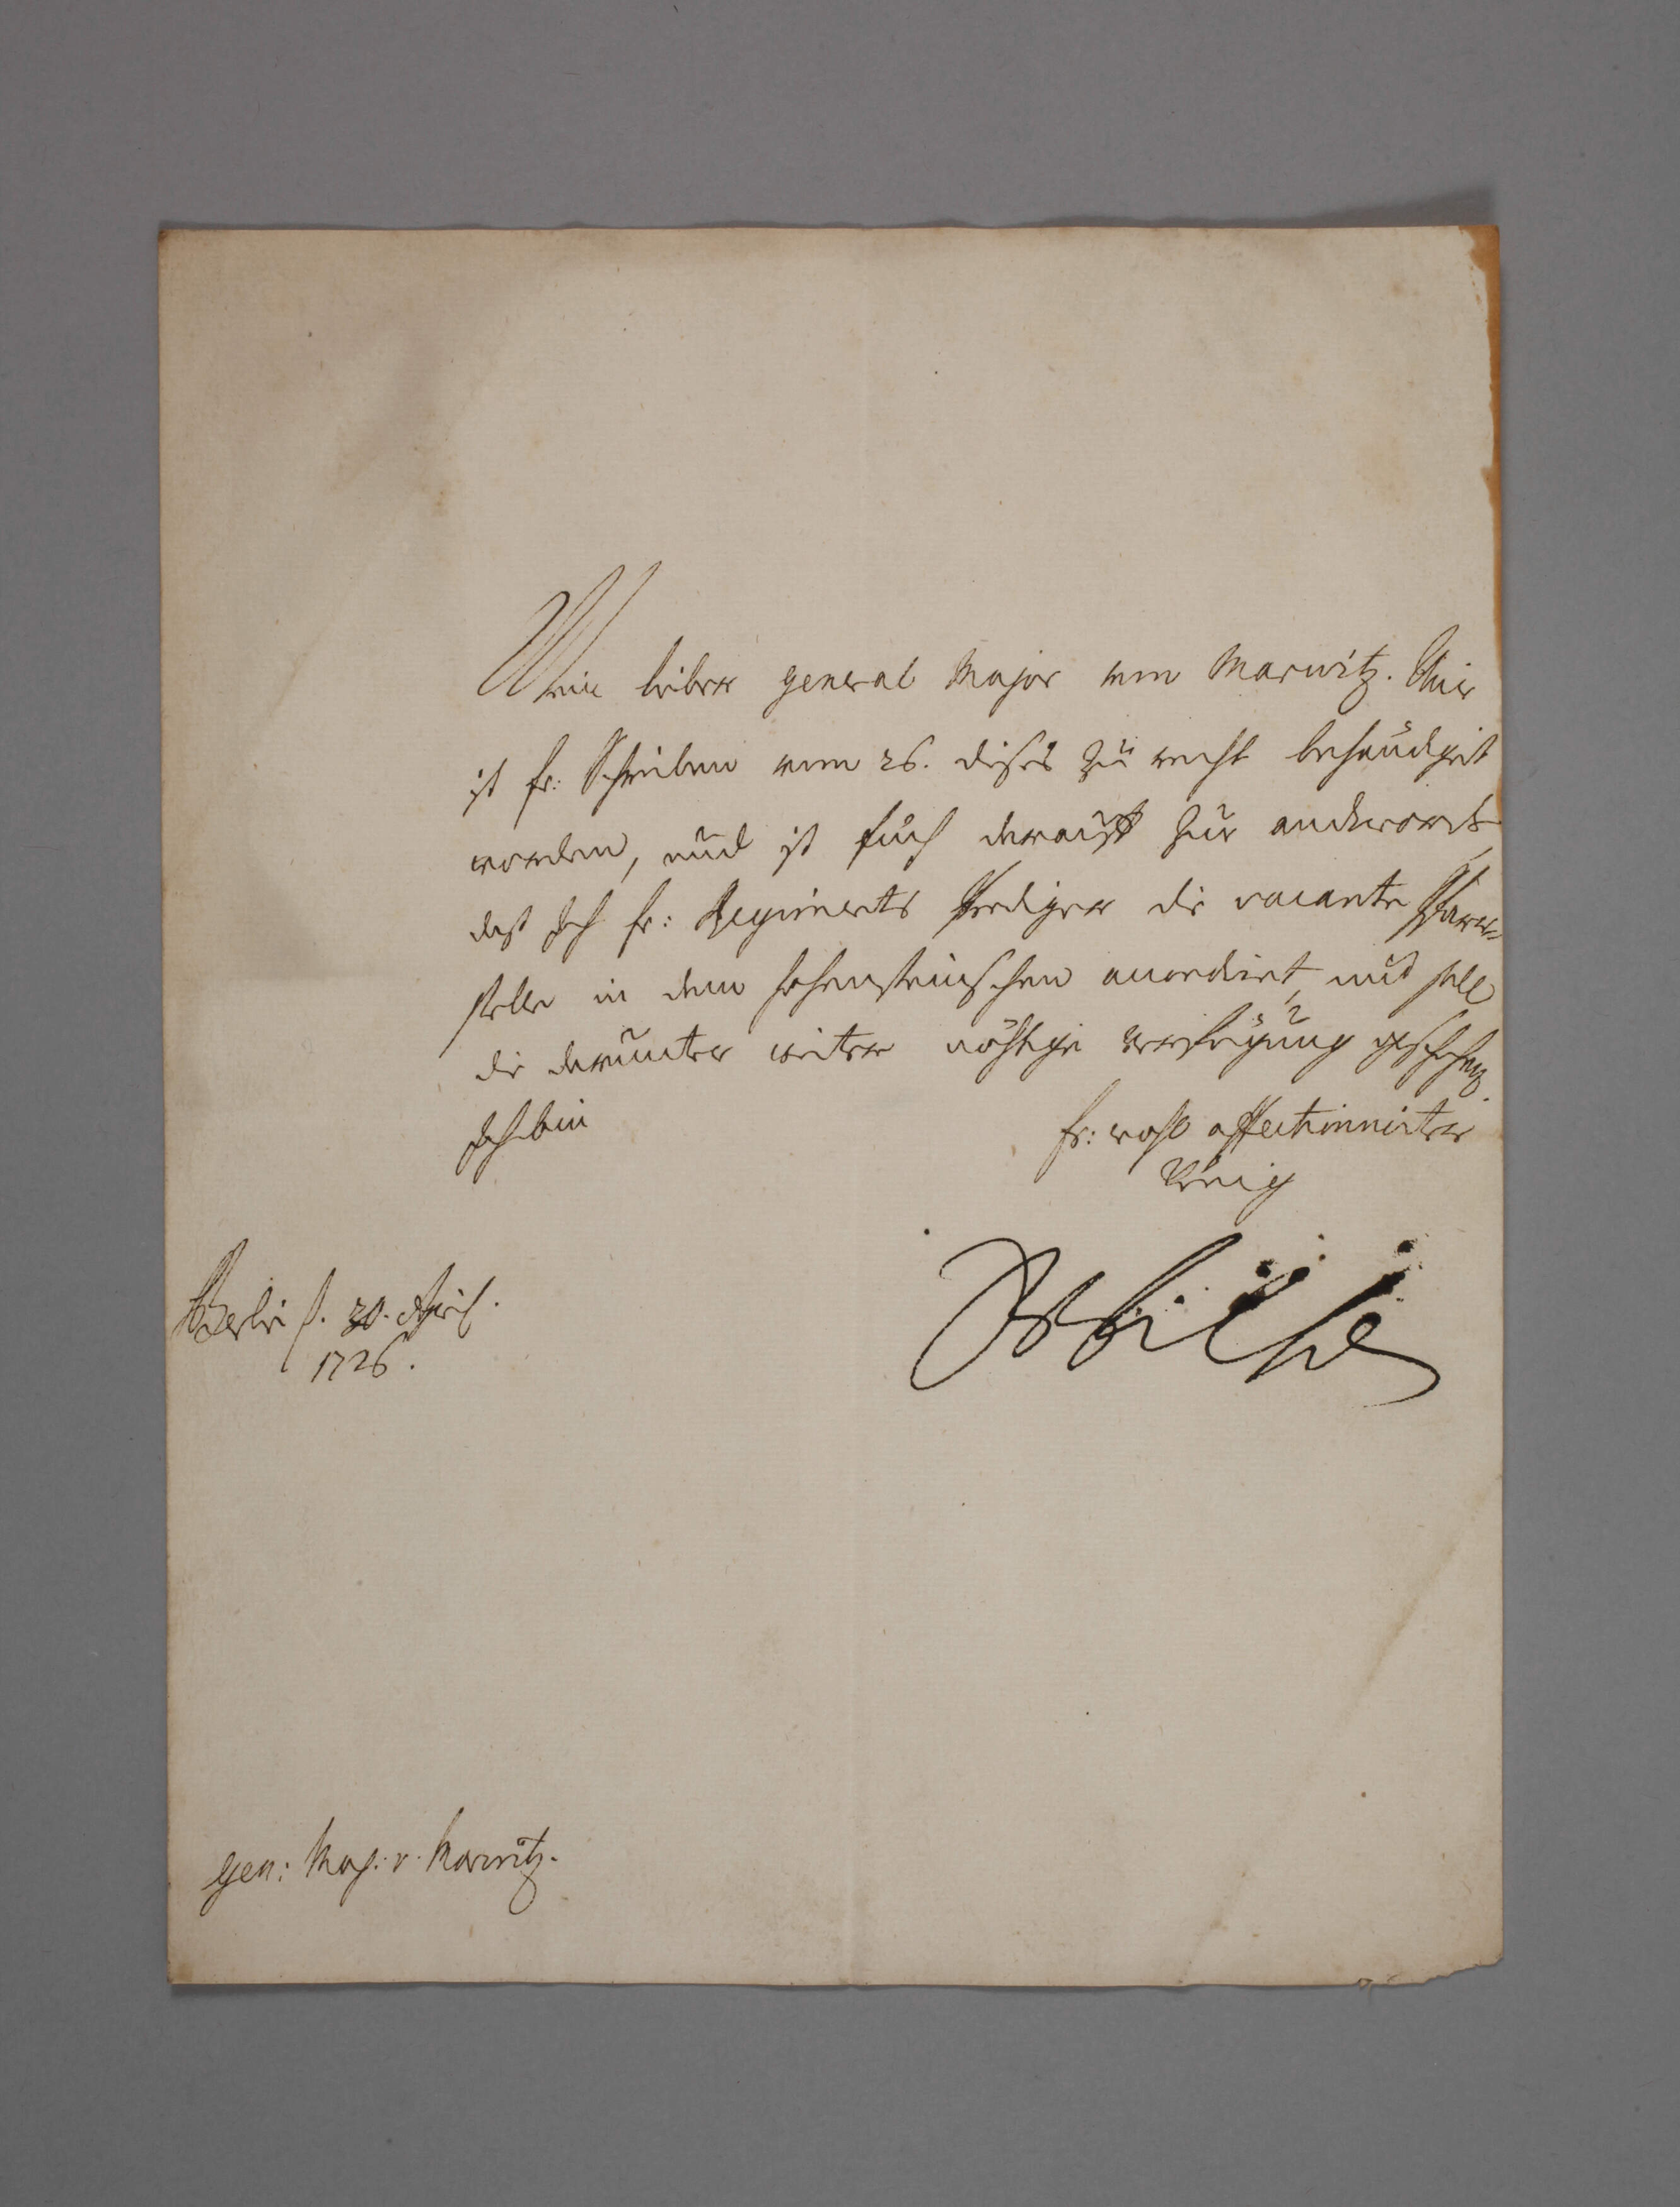 Mein lieber General Major von Marwitz. Mir
ist Er: Schreiben vom 26. dises zu recht behändiget
worden, und ist Euch darauff zur andtwort,
daß Ich Er: Regiments Prediger die vacante Pfarr=
stelle in dem Hohensteinschen accordirt, und soll
die darunter weiter nöhtige verfügung geschehen.
Ich bin
Er: wohl affectionnirter
König
Berlin d. 30. April.
1726.
Gen: Maj: v. Marwitz.